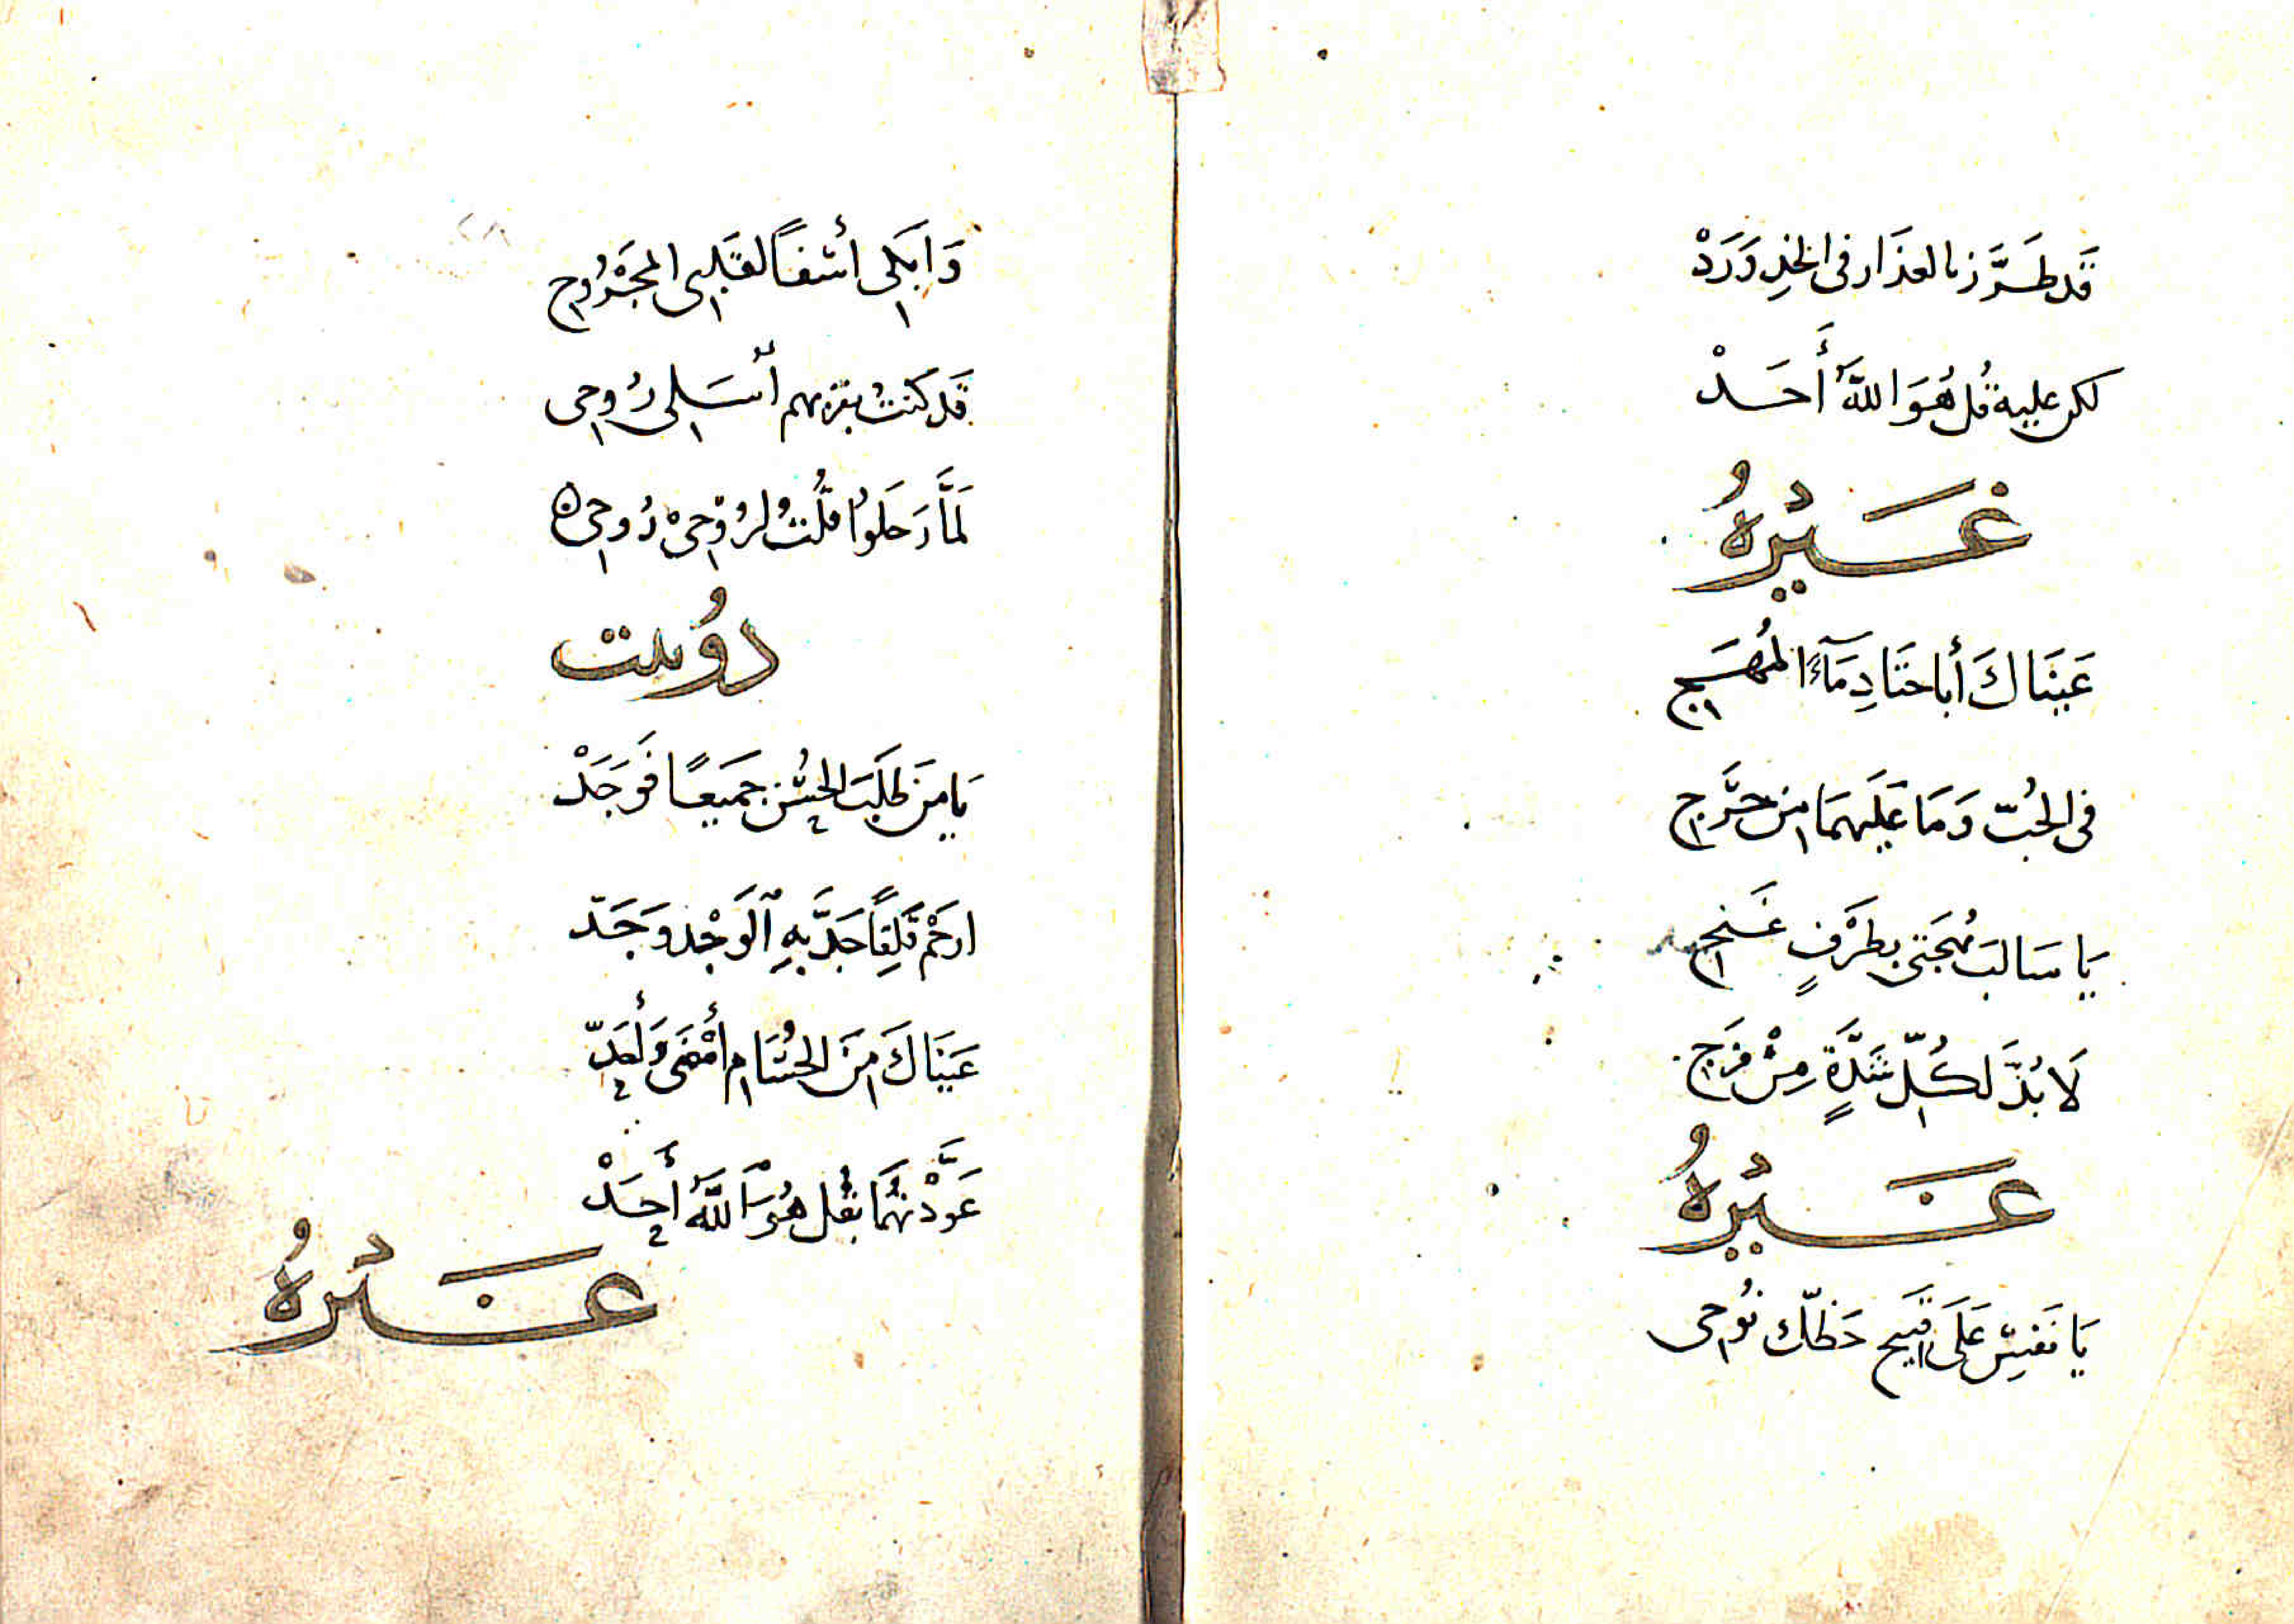 قَد طَرَّزنا لعذَار فى الخدِ وَرَدْ
لكن عليه قُل هُوَ اللَّه أَحَدْ
غَيْرهُ
عَينَاكَ أباحَتَا دِمَآءَ المُهَجِ
فى الحُبّ وَمَا عَلَيهمَا من حَرَج
يَا سَالبَ مُهجَتى بطَرْفٍ غَنج
لَا بُدَّ لكُلّ شَدَّةٍ مِنْ فرَج
غَيْرهُ
يَا نَفسِ عَلَى قبَيح حَظّك نُوحى
وَابكى أسَفاً لقَلبى المجَرُوح
قَد كنتُ بقربهم أسَلى رُوحى
لَمَّا رَحَلوُا قُلتُ لرُوْحىْ رُوحى ه
دوُبيت
يَا مَن طَلَبَ الحُسْن جَميَعًا فَوَجَدْ
ارحَمْ قَلِقاً جَدَّ بِهِ الَوَجْد وَجَدّ
عَينَاكَ مِنَ الحُسَام أمْضَى وَأَحَدّ
عَوَّذْتهُمَا بقُل هُوَ اللَّه أَحَدْ
غَيْرهُ